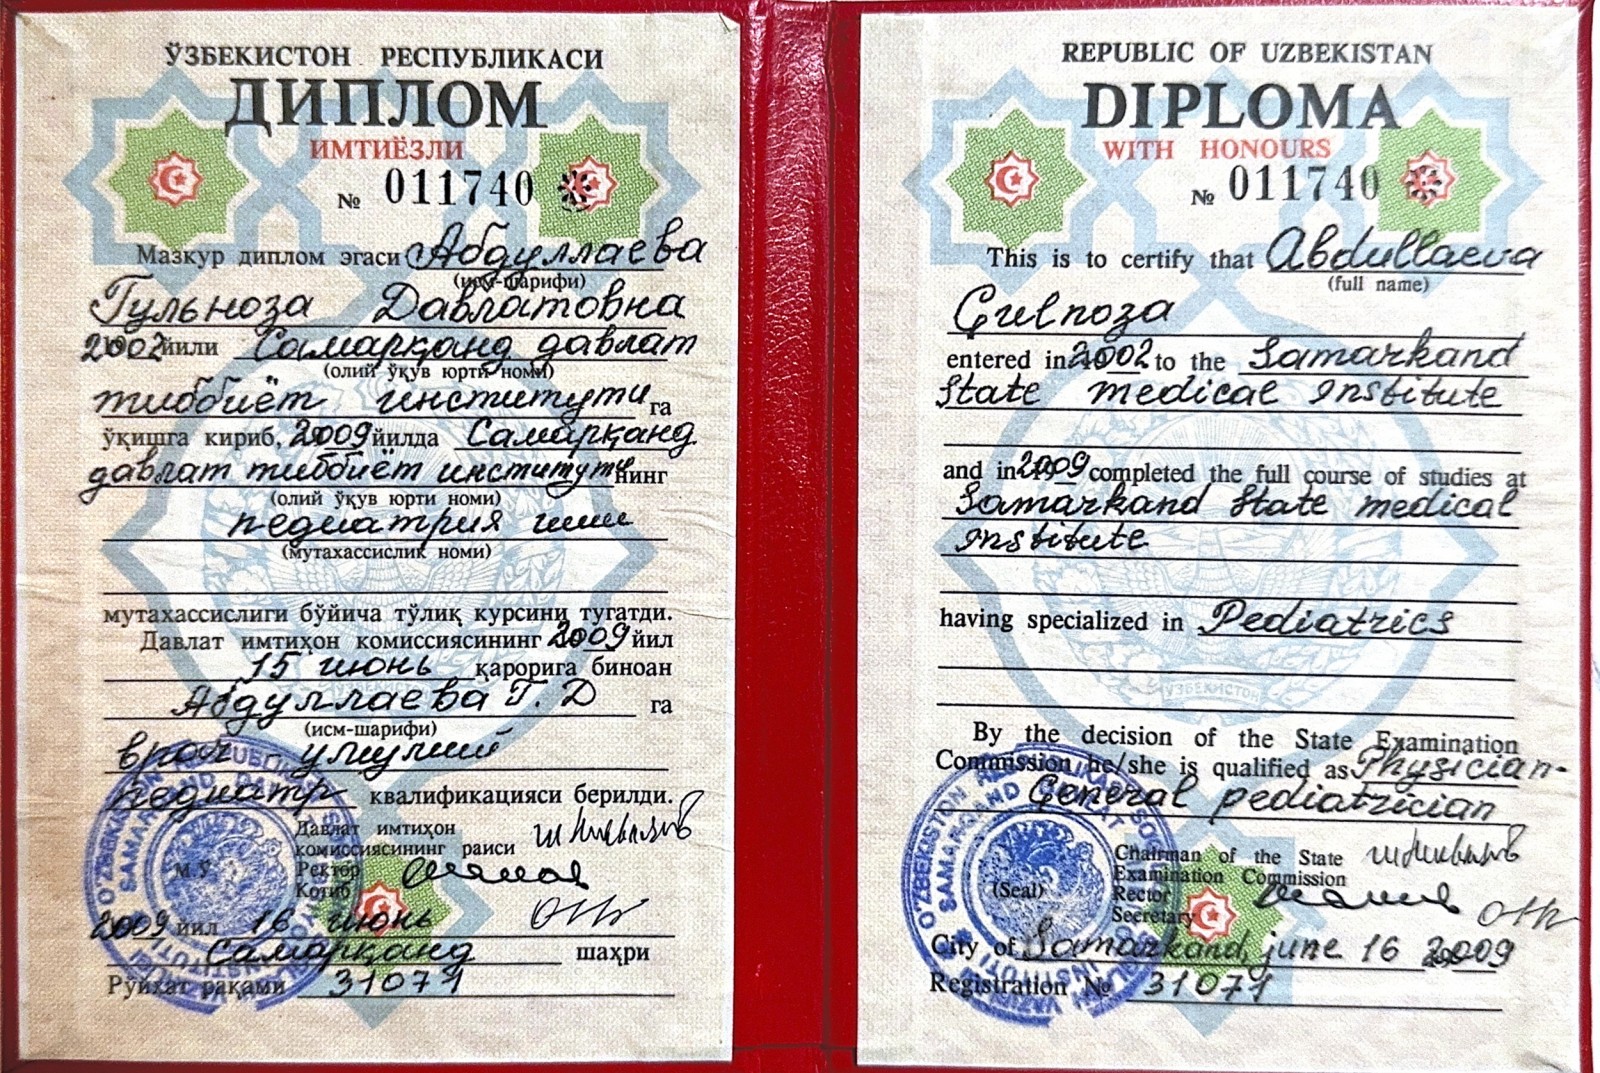 ЎЗБЕКИСТОН РЕСПУБЛИКАСИ
ДИПЛОМ
ИМТИЁЗЛИ
№ 011740
Мазкур диплом эгаси Абдуллаева
(исм-шарифи)
Гульноза Давлатовна
2002 йили Самарқанд давлат
(олий ўқув юрти номи)
тиббиёт институти га
ўқишга кириб, 2009 йилда Самарқанд
давлат тиббиёт институти нинг
(олий ўқув юрти номи)
педиатрия иши
(мутахассислик номи)
мутахассислиги бўйича тўлиқ курсини тугатди.
Давлат имтиҳон комиссиясининг 2009 йил
15 июнь қарорига биноан
Абдуллаева Г. Д га
(исм-шарифи)
врач умумий
педиатр квалификацияси берилди.
Давлат имтиҳон
комиссиясининг раиси
Ректор
Котиб
М.Ў.
2009 йил 16 июнь
Самарқанд шаҳри
Рўйхат рақами 31071
REPUBLIC OF UZBEKISTAN
DIPLOMA
WITH HONOURS
№ 011740
This is to certify that Abdullaeva
(full name)
Gulnoza
entered in 2002 to the Samarkand
State medical Institute
and in 2009 completed the full course of studies at
Samarkand State medical
Institute
having specialized in Pediatrics
ЎЗБЕКИСТОН
By the decision of the State Examination
Commission he/she is qualified as Physician-
General pediatrician
Chairman of the State
Examination Commission
Rector
Secretary
(Seal)
City of Samarkand, june 16 2009
Registration № 31071